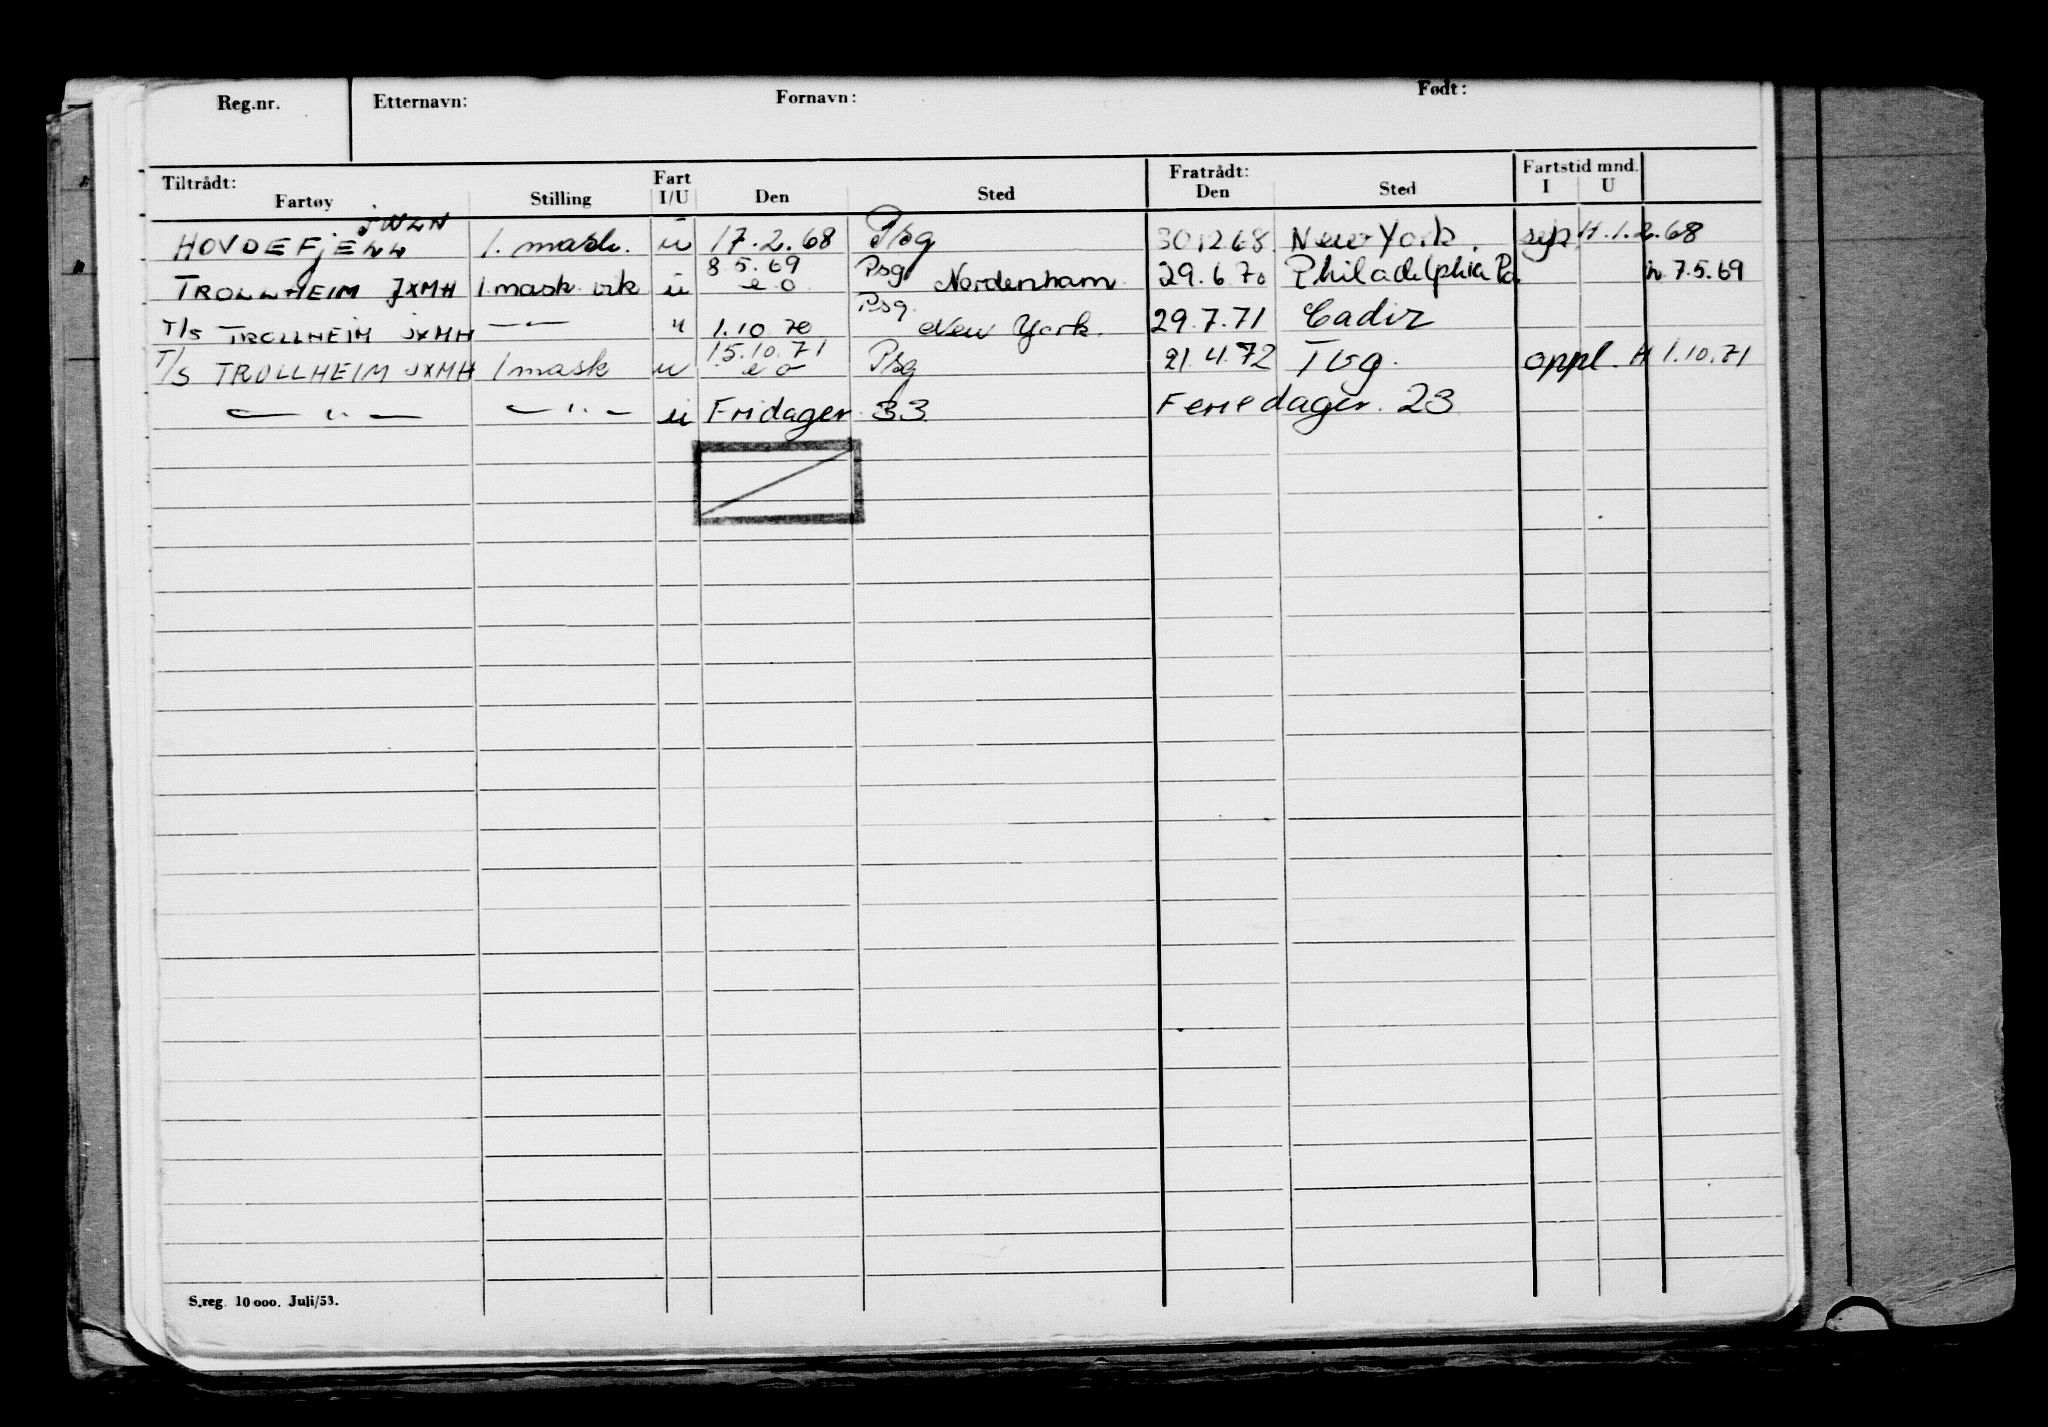 Reg.nr. Etternavn: Fornavn: Født:
Tiltrådt: Fratrådt: Fartstid mnd.
Fartøy Stilling Fart I/U Den Sted Den Sted I U
HOVDEFJELL JWLN 1. mask. u 17.2.68 Psg 30 12 68 New York. syk H.1.2.68
TROLLHEIM JXMH 1 mask vik u 8 5.69 e o Psg Nordenham 29.6.70 Philadelphia Pa h. 7.5.69
T/S TROLLHEIM JXMH — " — " 1.10 70 Psg. New York. 29.7.71 Cadiz
T/S TROLLHEIM JXMH 1 mask u 15.10.71 e o Psg 21.4.72 Tvg. oppl. H 1.10.71
— " — — " — u Fridager 33 Feriedager. 23
S.reg. 10 000. Juli/53.